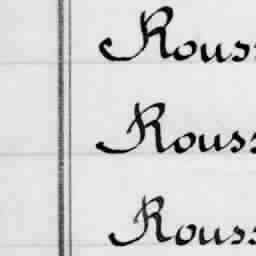 Rouss
Rouss
Rouss